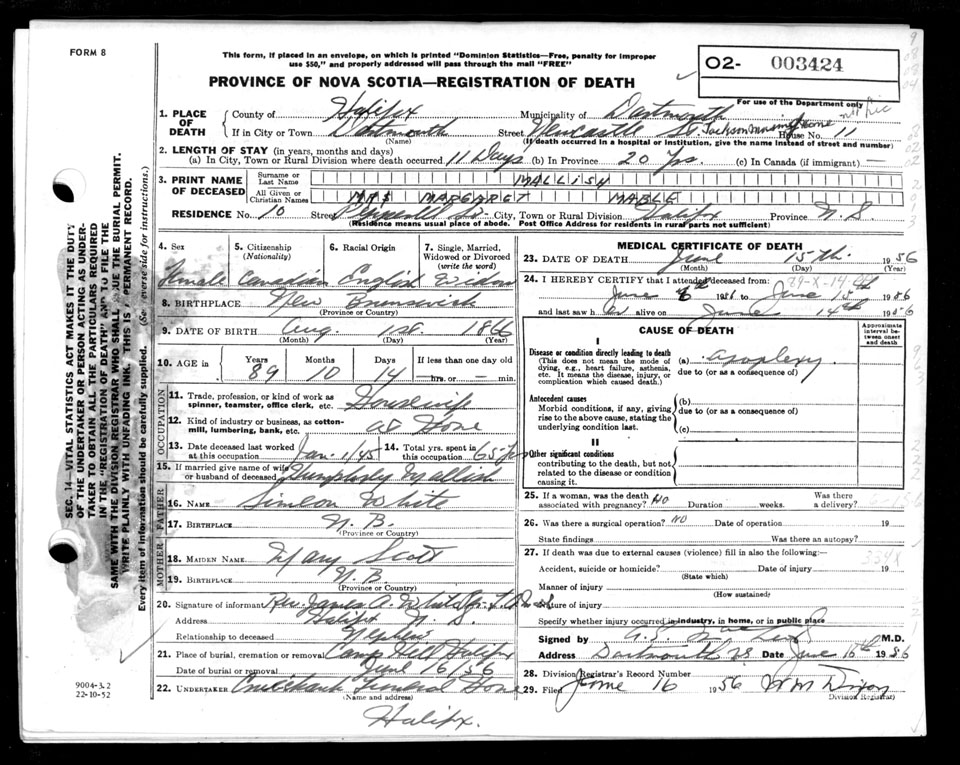 FORM 8
This form, if placed in an envelope, on which is printed "Dominion Statistics—Free, penalty for improper
use $50," and properly addressed will pass through the mail "FREE"
PROVINCE OF NOVA SCOTIA—REGISTRATION OF DEATH
O2- 003424
For use of the Department only
SEC. 14 VITAL STATISTICS ACT MAKES IT THE DUTY
OF THE UNDERTAKER OR PERSON ACTING AS UNDER-
TAKER TO OBTAIN ALL THE PARTICULARS REQUIRED
IN THE "REGISTRATION OF DEATH" AND TO FILE THE
SAME WITH THE DIVISION REGISTRAR WHO SHALL ISSUE THE BURIAL PERMIT.
WRITE PLAINLY WITH UNFADING INK. THIS IS A PERMANENT RECORD.
Every item of information should be carefully supplied. (See reverse side for instructions.)
1. PLACE OF DEATH County of Halifax Municipality of Dartmouth
If in City or Town Dartmouth Street Newcastle St Jackson Nursing Home House No. 11
(Name) (If death occurred in a hospital or institution, give the name instead of street and number)
2. LENGTH OF STAY (in years, months and days)
(a) In City, Town or Rural Division where death occurred 11 Days (b) In Province 20 Yrs. (c) In Canada (if immigrant) —
3. PRINT NAME OF DECEASED Surname or Last Name MALLISH
All Given or Christian Names MRS MARGARET MABLE
RESIDENCE No. 10 Street City, Town or Rural Division Halifax Province N.S.
(Residence means usual place of abode. Post Office Address for residents in rural parts not sufficient)
4. Sex 5. Citizenship (Nationality) 6. Racial Origin 7. Single, Married, Widowed or Divorced (write the word)
Female Canadian English Widow
8. BIRTHPLACE New Brunswick
(Province or Country)
9. DATE OF BIRTH Aug. 1st 1866
(Month) (Day) (Year)
10. AGE Years 89 Months 10 Days 14 If less than one day old — hrs. or — min.
OCCUPATION
11. Trade, profession, or kind of work as spinner, teamster, office clerk, etc. Housewife
12. Kind of industry or business, as cotton-mill, lumbering, bank, etc. at Home
13. Date deceased last worked at this occupation Jan. 1/45 14. Total yrs. spent in this occupation 65 yrs
15. If married give name of wife or husband of deceased Humphrey Mallish
FATHER
16. NAME Simeon White
17. BIRTHPLACE N.B.
(Province or Country)
MOTHER
18. MAIDEN NAME Mary Scott
19. BIRTHPLACE N.B.
(Province or Country)
20. Signature of informant Rev. James A. White
Address Halifax N.S.
Relationship to deceased Nephew
21. Place of burial, cremation or removal Camp Hill Halifax
Date of burial or removal June 16/56
22. UNDERTAKER Cruikshank Funeral Home
(Name and address)
Halifax.
9004-3.2
22-10-52
MEDICAL CERTIFICATE OF DEATH
23. DATE OF DEATH June 15th 1956
(Month) (Day) (Year)
24. I HEREBY CERTIFY that I attended deceased from:
89-X-14
June 1956 to June 15 1956
and last saw h er alive on June 14th 1956
CAUSE OF DEATH
Approximate interval between onset and death
I
Disease or condition directly leading to death
(This does not mean the mode of dying, e.g., heart failure, asthenia, etc. It means the disease, injury, or complication which caused death.)
(a) apoplexy
due to (or as a consequence of)
Antecedent causes
Morbid conditions, if any, giving rise to the above cause, stating the underlying condition last.
(b)
due to (or as a consequence of)
(c)
II
Other significant conditions
contributing to the death, but not related to the disease or condition causing it.
25. If a woman, was the death associated with pregnancy? NO Duration weeks. Was there a delivery?
26. Was there a surgical operation? NO Date of operation 19
State findings Was there an autopsy?
27. If death was due to external causes (violence) fill in also the following:
334X
Accident, suicide or homicide? Date of injury 19
(State which)
Manner of injury
(How sustained)
Nature of injury
Specify whether injury occurred in industry, in home, or in public place
Signed by M.D.
Address Dartmouth NS Date June 15th 1956
28. Division Registrar's Record Number
29. Filed June 16 1956 W M Dixon
Division Registrar